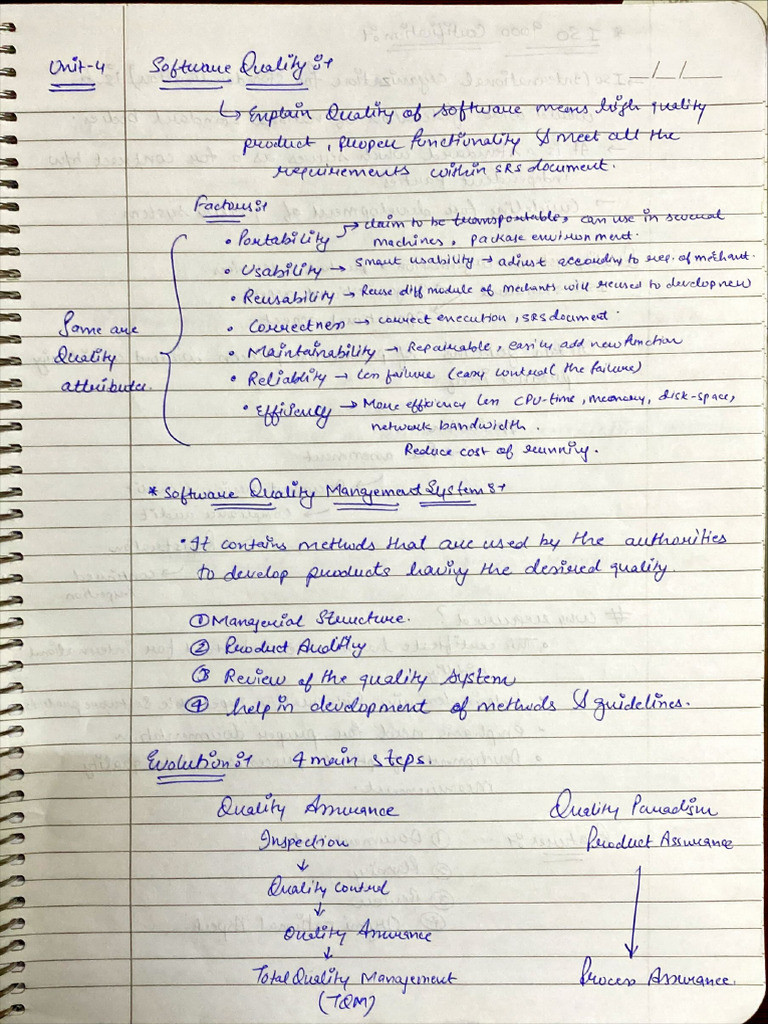 Unit-4 Software Quality :→ __/__/__
↳ Explain Quality of software means high quality
product, proper functionality & meet all the
requirements within SRS document.
Factors :→
• Portability → claim to be transportable, can use in several
machines, package environment.
• Usability → smart usability → adjust according to req. of
• Reusability → Reuse diff module of will reused to develop new
• Correctness → correct execution, SRS document.
Some are
Quality
attributes.
• Maintainability → Repairable, easily add new function
• Reliability → less failure (easy control the failure)
• Efficiency → More efficiency less CPU-time, memory, disk-space,
network bandwidth.
Reduce cost of running.
* Software Quality Management System :→
• It contains methods that are used by the authorities
to develop products having the desired quality.
① Managerial Structure.
② Product Auditing
③ Review of the quality system
④ help in development of methods & guidelines.
Evolution :→ 4 main steps.
Quality Assurance Quality Paradism
Inspection Product Assurance
↓
Quality Control
↓
Quality Assurance
↓
Total Quality Management Process Assurance.
(TQM)